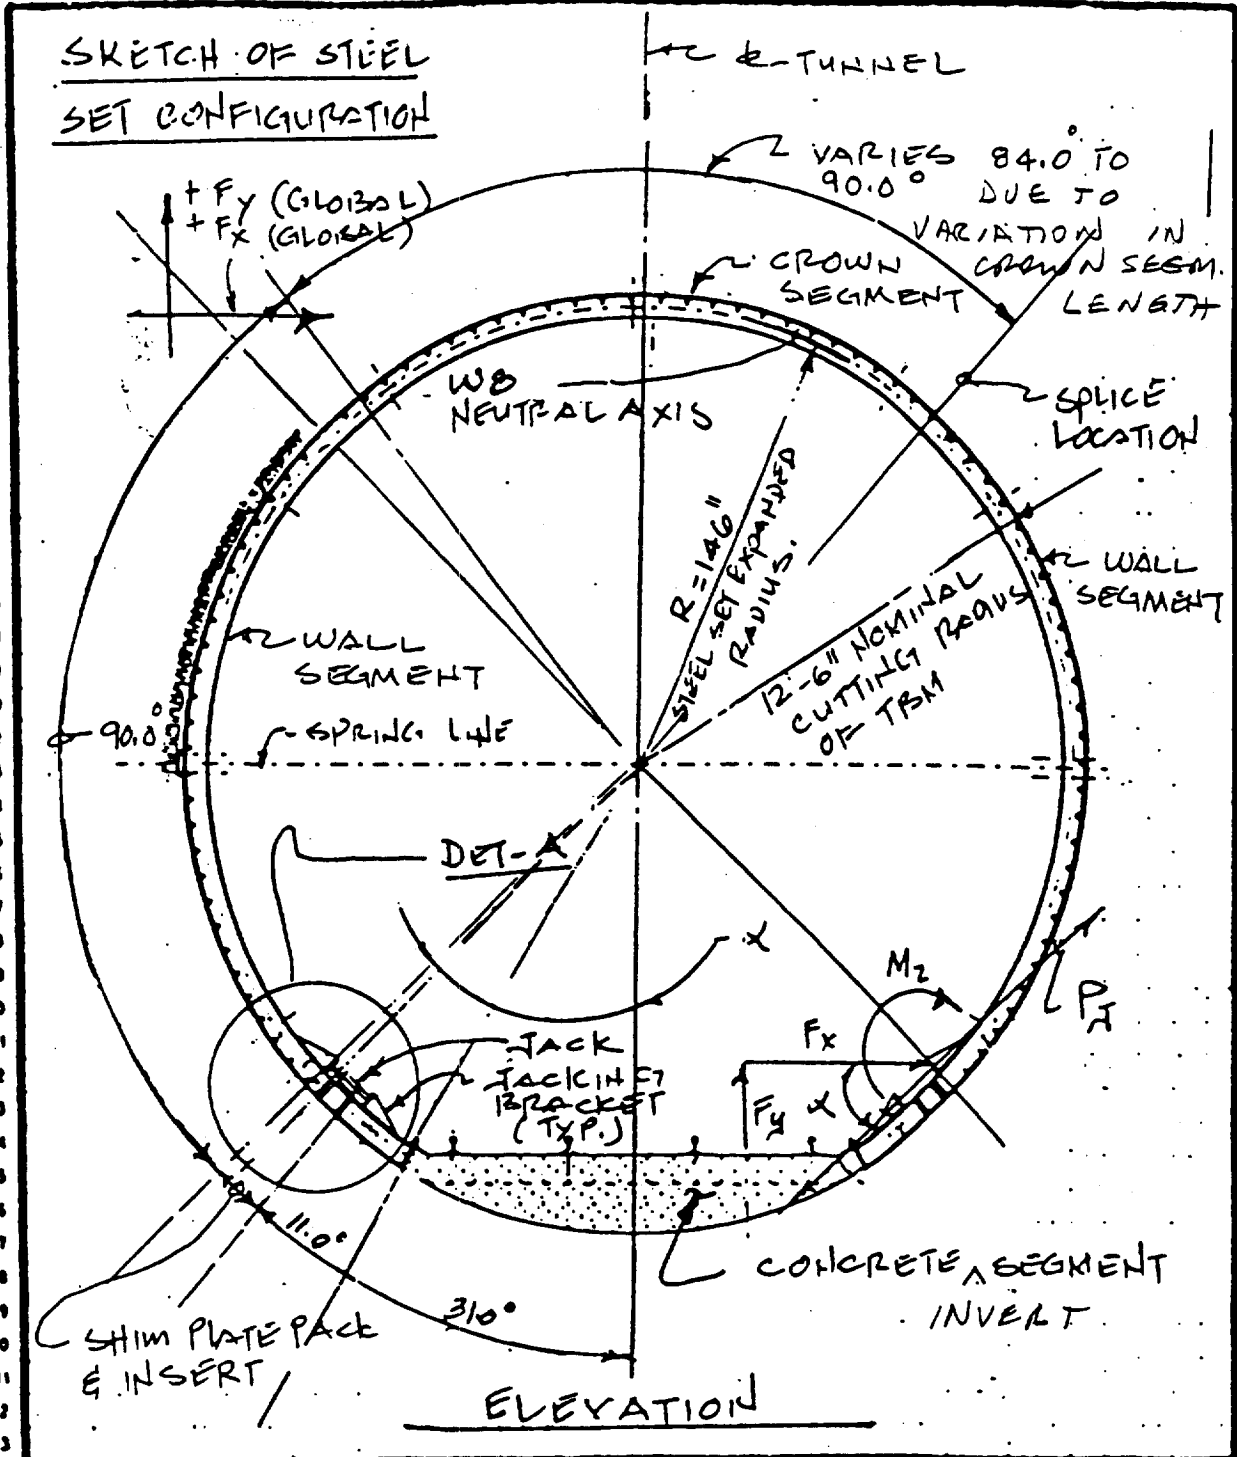 SKETCH OF STEEL
SET CONFIGURATION
℄ TUNNEL
VARIES 84.0° TO
90.0° DUE TO
VARIATION IN
CROWN SEGM.
LENGTH
+ Fy (GLOBAL)
+ Fx (GLOBAL)
CROWN
SEGMENT
W8
NEUTRAL AXIS
SPLICE
LOCATION
R = 146"
STEEL SET EXPANDED
RADIUS.
12'-6" NOMINAL
CUTTING RADIUS
OF TBM
WALL
SEGMENT
WALL
SEGMENT
90.0°
SPRING LINE
DET-A
α
M2
PJ
Fx
JACK
JACKING
BRACKET
(TYP.)
Fy
α
11.0°
31.0°
CONCRETE ^ SEGMENT
INVERT
SHIM PLATE PACK
& INSERT
ELEVATION